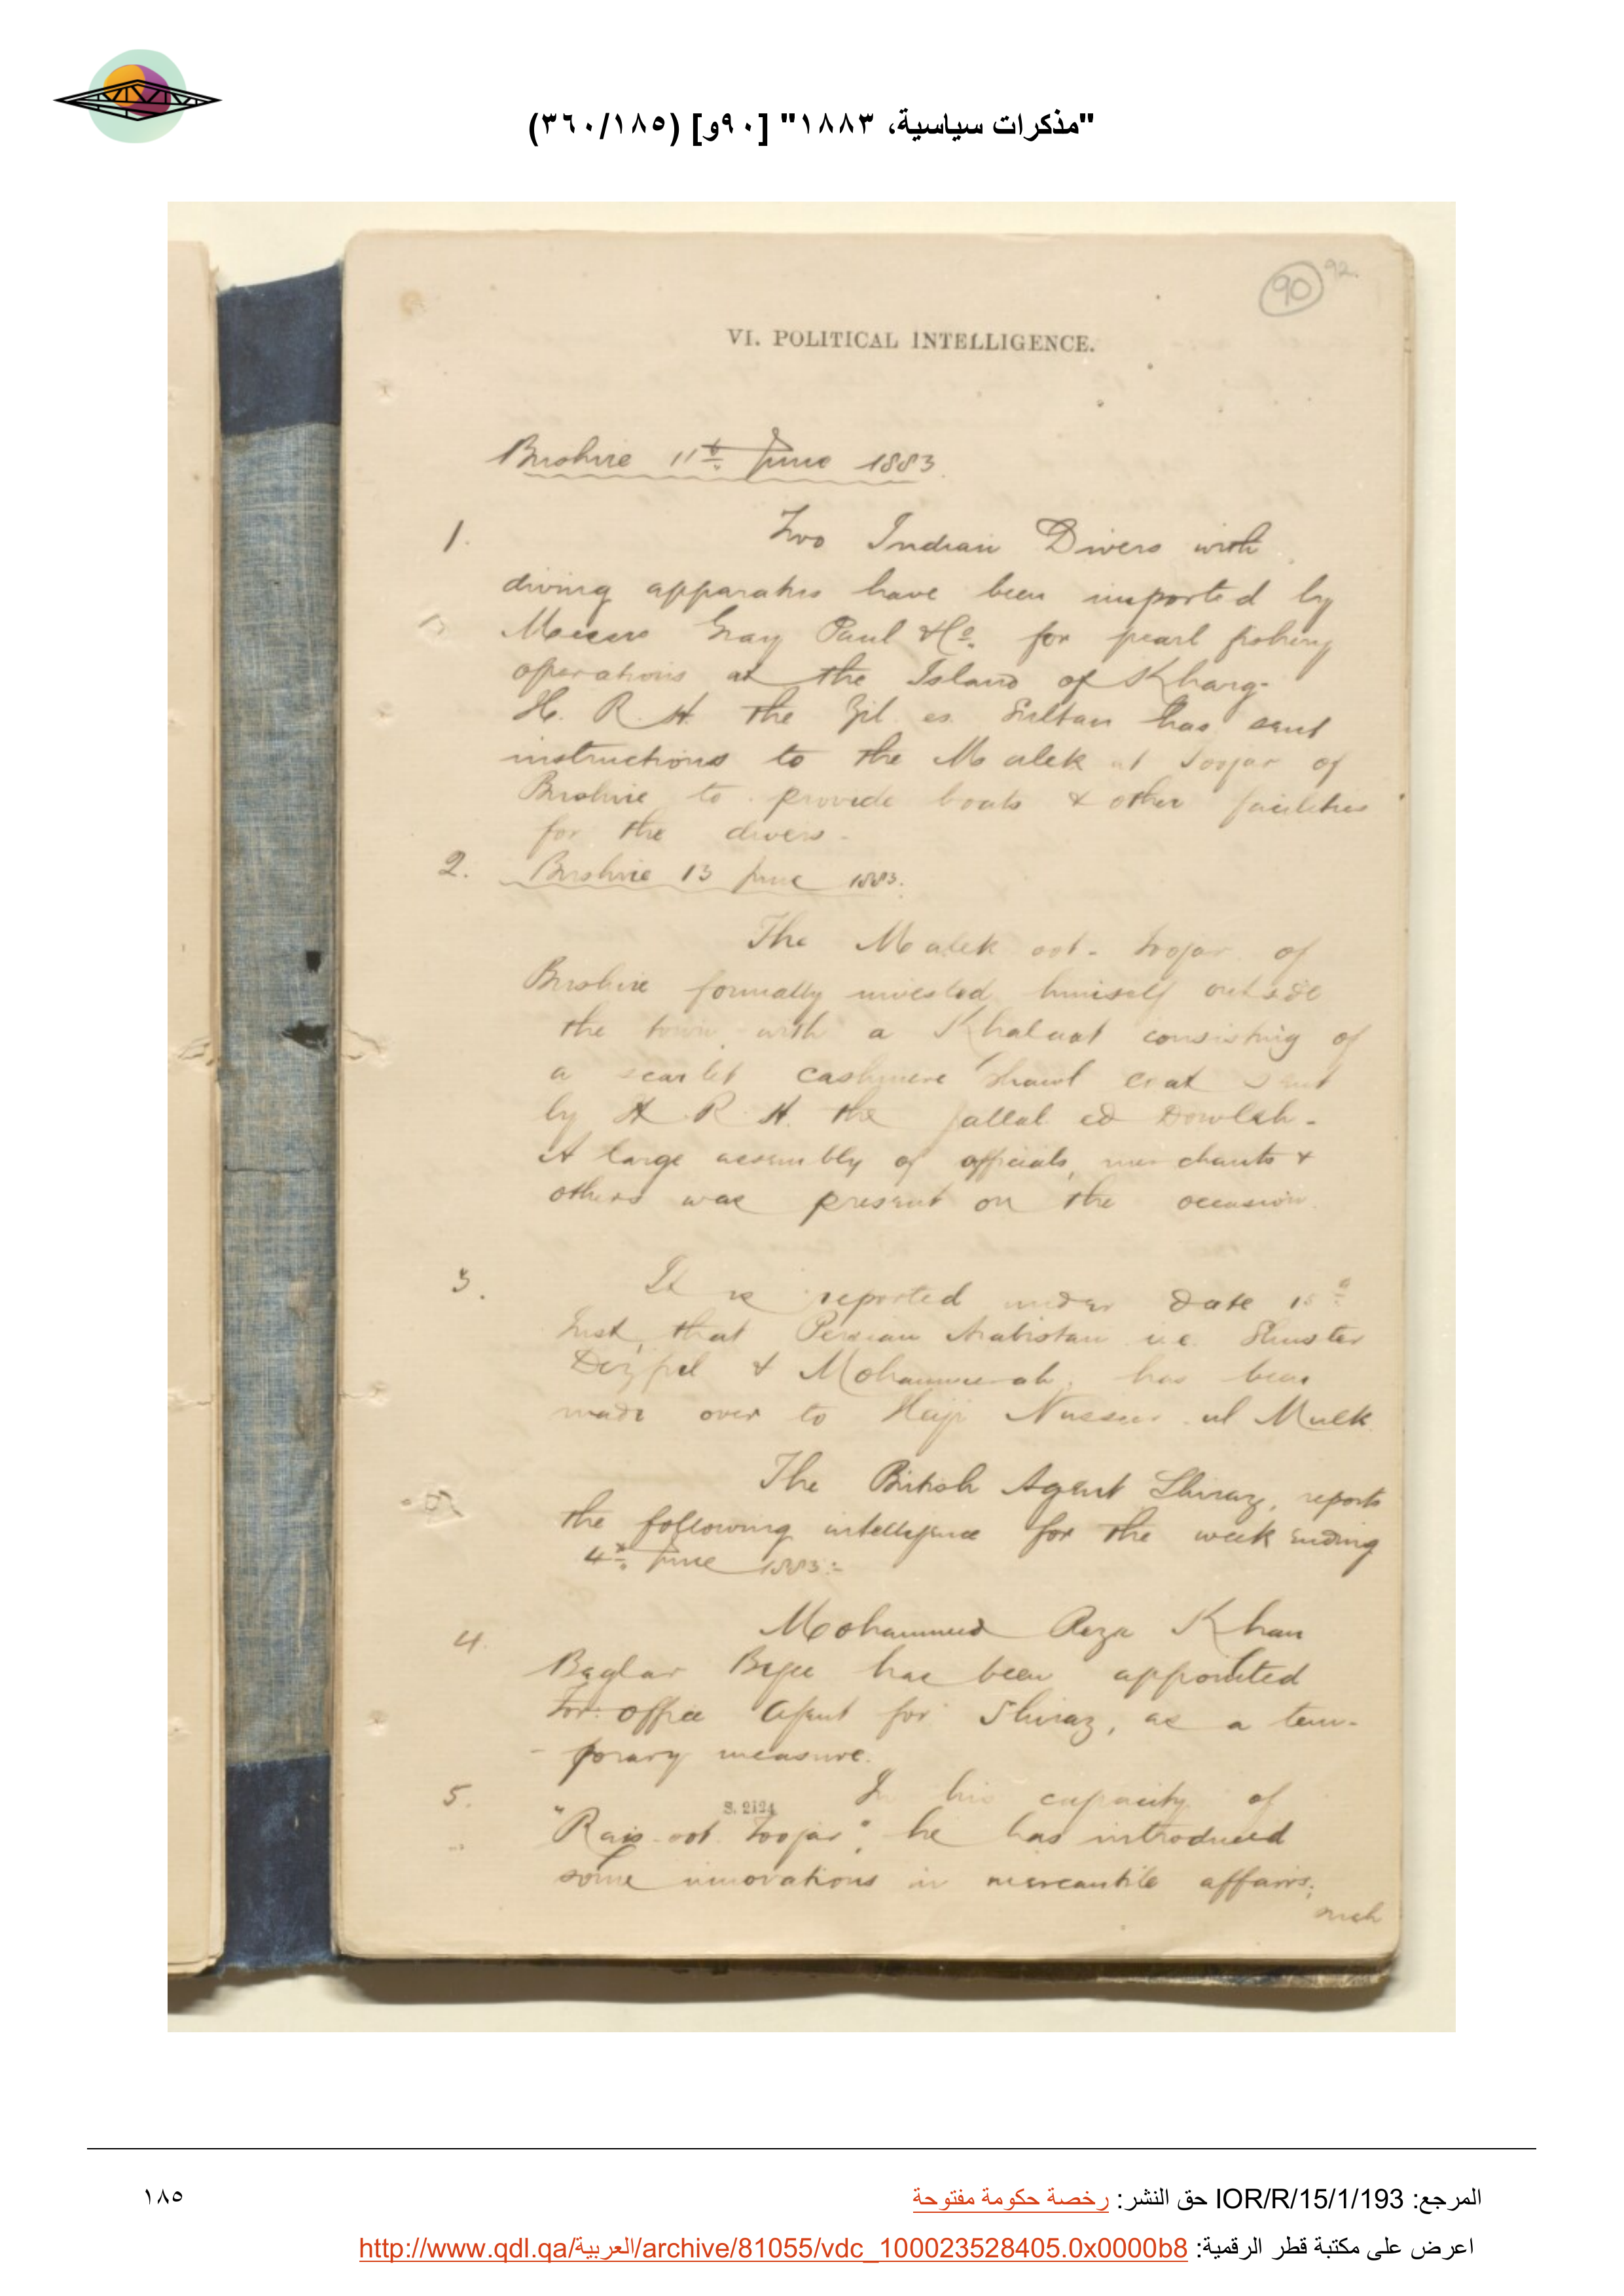 "مذكرات سياسية، ١٨٨٣" [٩٠و] (٣٦٠/١٨٥)
90 92.
VI. POLITICAL INTELLIGENCE.
Bushire 11th June 1883.
1. Two Indian Divers with
diving apparatus have been imported by
Messrs Gray Paul & Co. for pearl fishing
operations at the Island of Kharg-
H. R. H. the Zil es Sultan has sent
instructions to the Malek ut Toojar of
Bushire to provide boats & other facilities
for the divers-
2. Bushire 13 June 1883.
The Malek oot-toojar of
Bushire formally invested himself outside
the town with a Khalaat consisting of
a scarlet cashmere shawl coat sent
by H. R. H. the Jallal ed Dowleh-
A large assembly of officials, merchants &
others was present on the occasion.
3. It is reported under date
Inst, that Persian Arabistan i.e. Shuster
Dizful & Mohammerah, has been
made over to Haji Nusseer ul Mulk.
The British Agent Shiraz, reports
the following intelligence for the week ending
4th June 1883:-
4. Mohammed Reza Khan
Beglar Begee has been appointed
For: office Agent for Shiraz, as a tem-
-porary measure.
5. In his capacity of
S. 2124
"Rais-oot Toojar", he has introduced
some innovations in mercantile affairs;
such
المرجع: IOR/R/15/1/193 حق النشر: رخصة حكومة مفتوحة
١٨٥
اعرض على مكتبة قطر الرقمية: http://www.qdl.qa/العربية/archive/81055/vdc_100023528405.0x0000b8